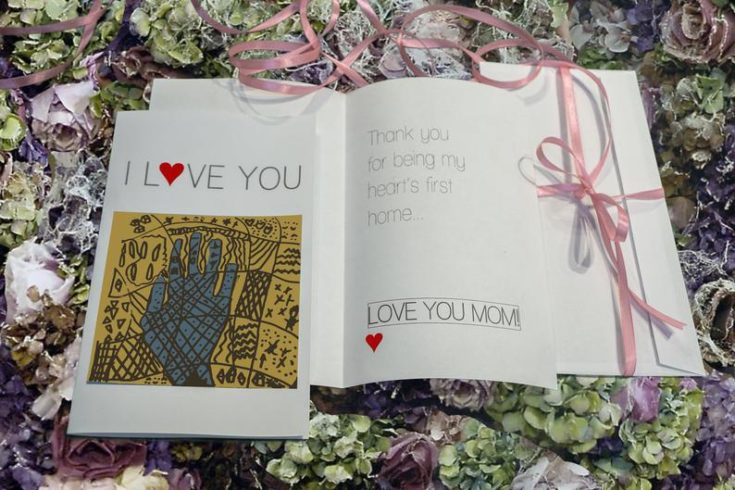 I L❤VE YOU
Thank you
for being my
heart's first
home...
LOVE YOU MOM!